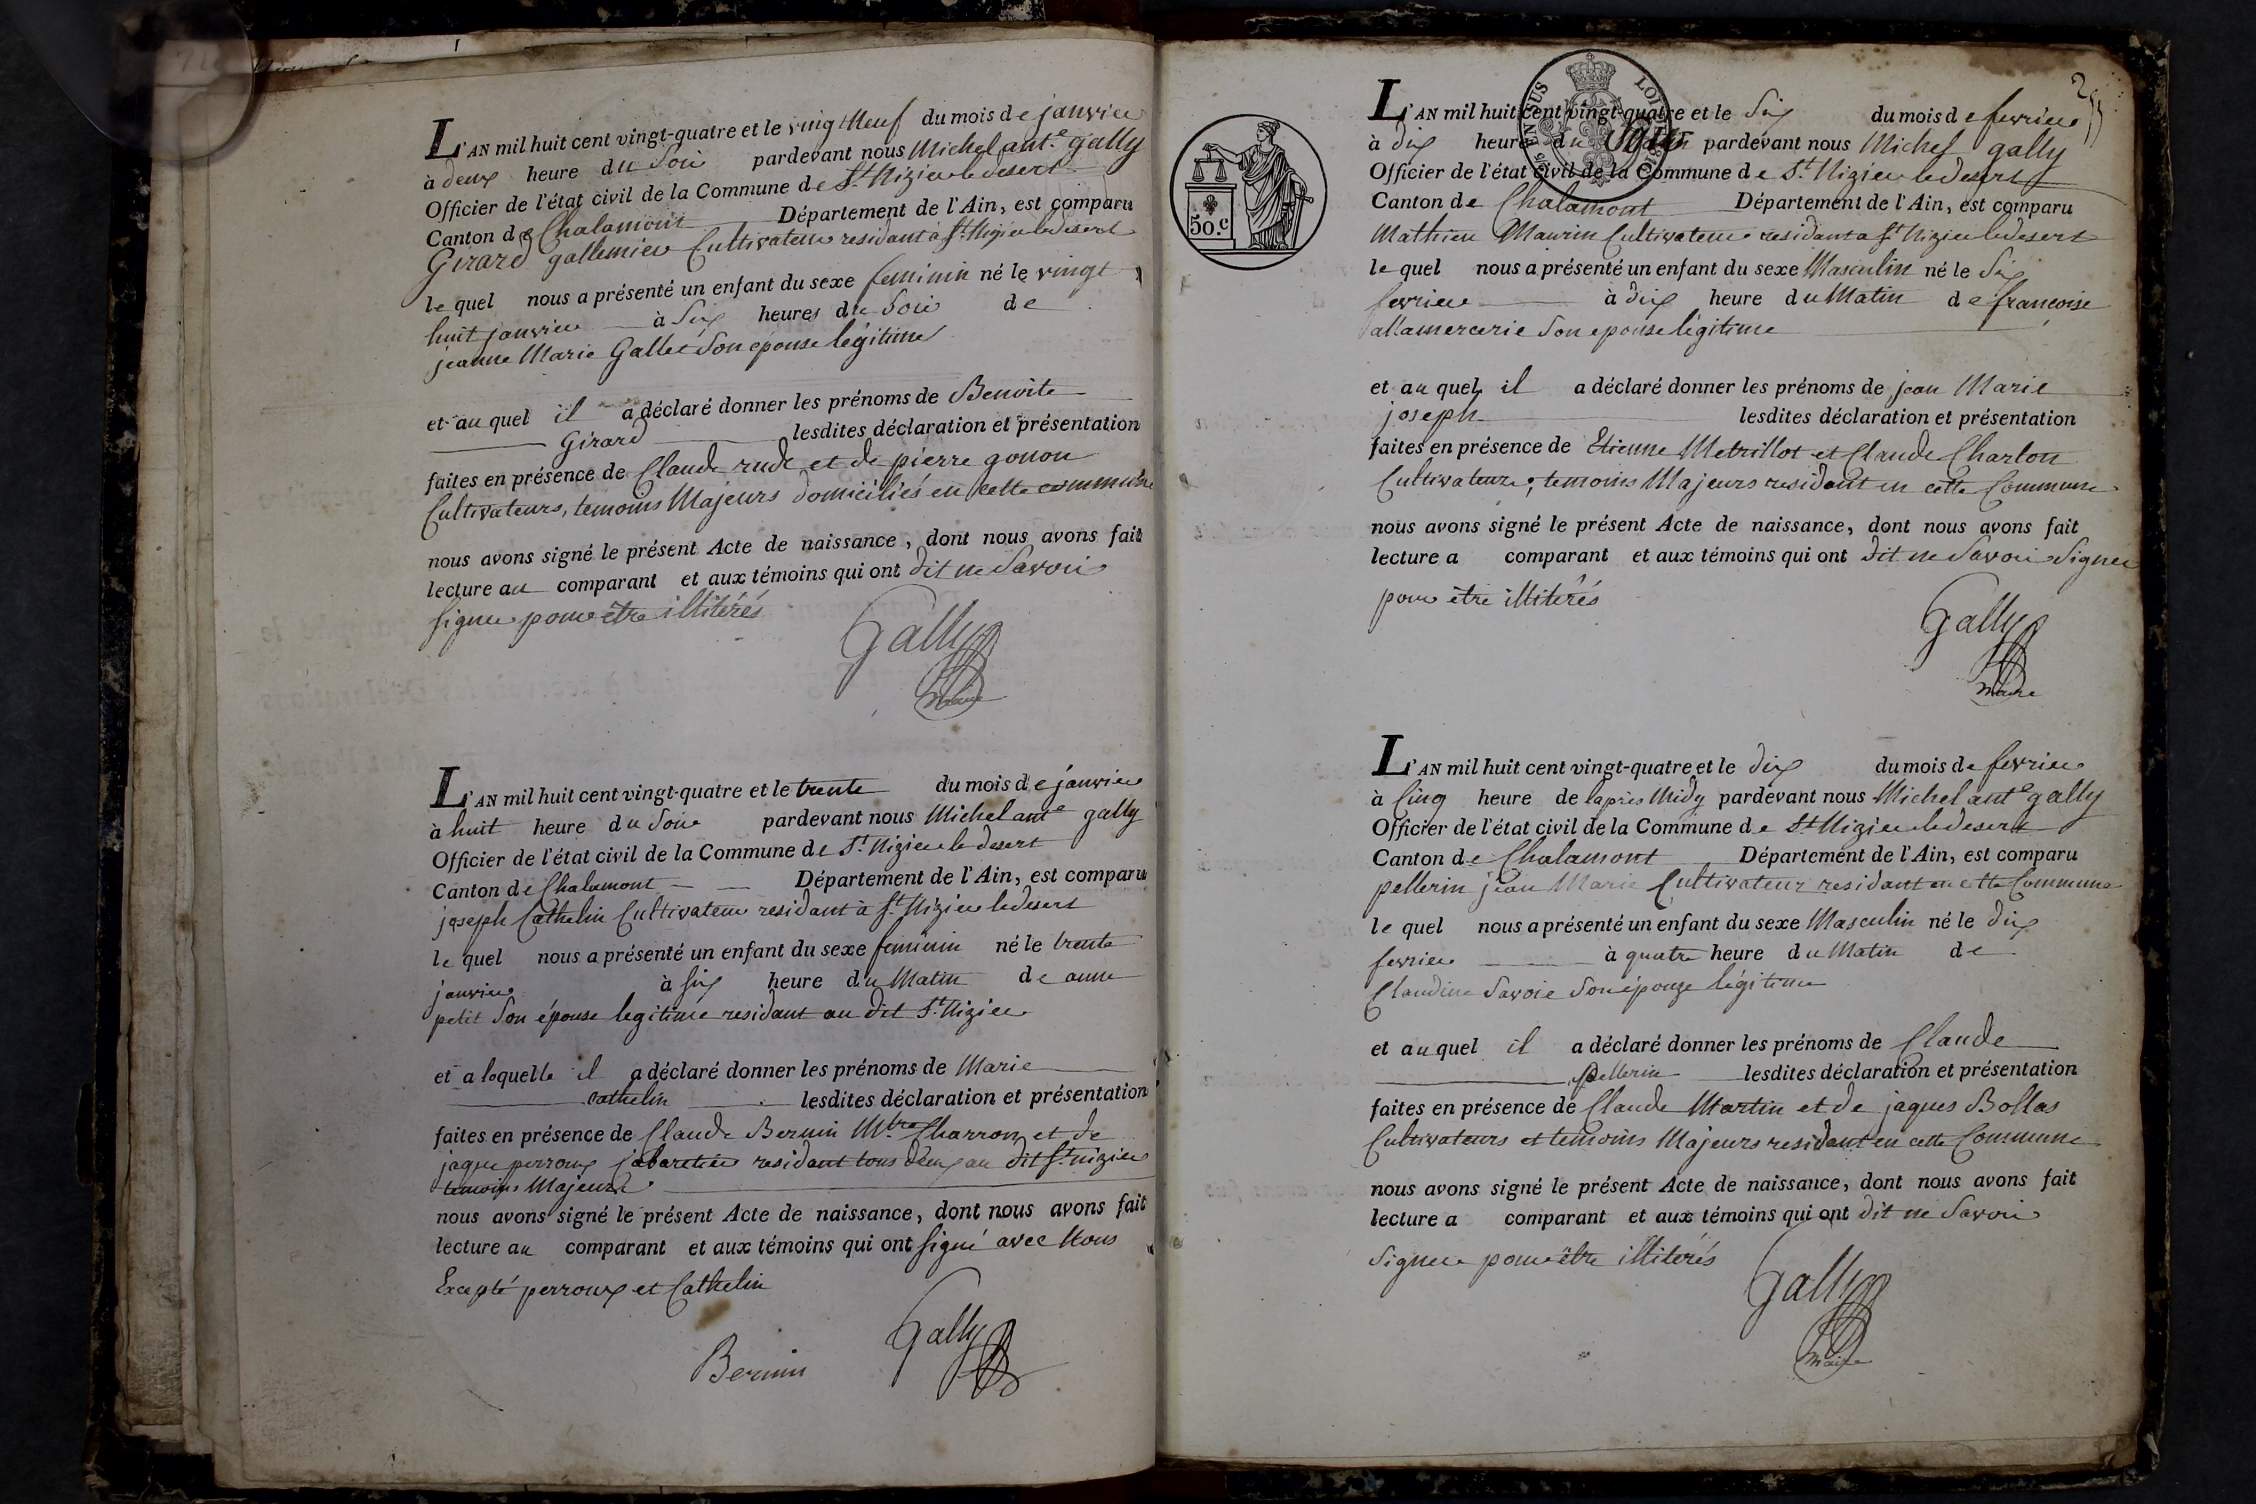 L'AN mil huit cent vingt-quatre et le vingt Neuf du mois de janvier
à deux heure du Soir pardevant nous Michel ant.e gally
Officier de l'état civil de la Commune de St Nizier le desert
Canton de Chalamont Département de l'Ain, est comparu
Girard gallemier Cultivateur residant à St Nizier le desert
le quel nous a présenté un enfant du sexe feminin né le vingt
huit janvier à Six heures du Soir de
jeanne Marie Gallet Son épouse légitime
et au quel il a déclaré donner les prénoms de Benoite
Girard lesdites déclaration et présentation
faites en présence de Claude rude et de pierre gonon
Cultivateurs, temoins Majeurs domiciliés en cette commune
nous avons signé le présent Acte de naissance, dont nous avons fait
lecture au comparant et aux témoins qui ont dit ne Savoir
Signer pour être illitérés
Gally
Maire
L'AN mil huit cent vingt-quatre et le trente du mois de janvier
à huit heure du Soir pardevant nous Michel ant.e gally
Officier de l'état civil de la Commune de St Nizier le desert
Canton de Chalamont Département de l'Ain, est comparu
joseph Cathelin Cultivateur residant à St Nizier le desert
le quel nous a présenté un enfant du sexe feminin né le trente
janvier à six heure du Matin de anne
petit Son épouse legitime residant au dit St Nizier
et a laquelle il a déclaré donner les prénoms de Marie
Cathelin lesdites déclaration et présentation
faites en présence de Claude Bernin Mtre Charron et de
jaque perroux Cabaretier residant tous deux au dit St nizier
temoins Majeurs
nous avons signé le présent Acte de naissance, dont nous avons fait
lecture au comparant et aux témoins qui ont signé avec Nous
Excepté perroux et Cathelin
Gally
Bernin
255
EN SUS
50.c
L'AN mil huit cent vingt-quatre et le Six du mois de fevrier
à dix heure du pardevant nous Michel gally
Officier de l'état civil de la Commune de St Nizier le desert
Canton de Chalamont Département de l'Ain, est comparu
Mathieu Maurin Cultivateur residant a St Nizier le desert
le quel nous a présenté un enfant du sexe Masculin né le Six
fevrier à dix heure du Matin de francoise
allamercerie Son epouse légitime
et au quel il a déclaré donner les prénoms de jean Marie
joseph lesdites déclaration et présentation
faites en présence de Etienne Metrillot et Claude Charlon
Cultivateurs, temoins Majeurs residant en cette Commune
nous avons signé le présent Acte de naissance, dont nous avons fait
lecture a comparant et aux témoins qui ont dit ne Savoir Signer
pour être illitérés
Gally
Maire
L'AN mil huit cent vingt-quatre et le dix du mois de fevrier
à Cinq heure de lapres Midy pardevant nous Michel ant.e gally
Officier de l'état civil de la Commune de St Nizier le desert
Canton de Chalamont Département de l'Ain, est comparu
pellerin jean Marie Cultivateur residant en cette Commune
le quel nous a présenté un enfant du sexe Masculin né le dix
fevrier à quatre heure du Matin de
Claudine Savoie Son épouze légitime
et au quel il a déclaré donner les prénoms de Claude
pellerin lesdites déclaration et présentation
faites en présence de Claude Martin et de jaques Bollas
Cultivateurs et temoins Majeurs residant en cette Commune
nous avons signé le présent Acte de naissance, dont nous avons fait
lecture a comparant et aux témoins qui ont dit ne Savoir
Signer pour être illitérés
Gally
Maire